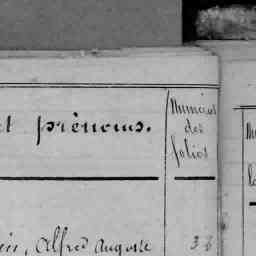 et prénoms.
Numéros
des
folios
Alfred Auguste 38